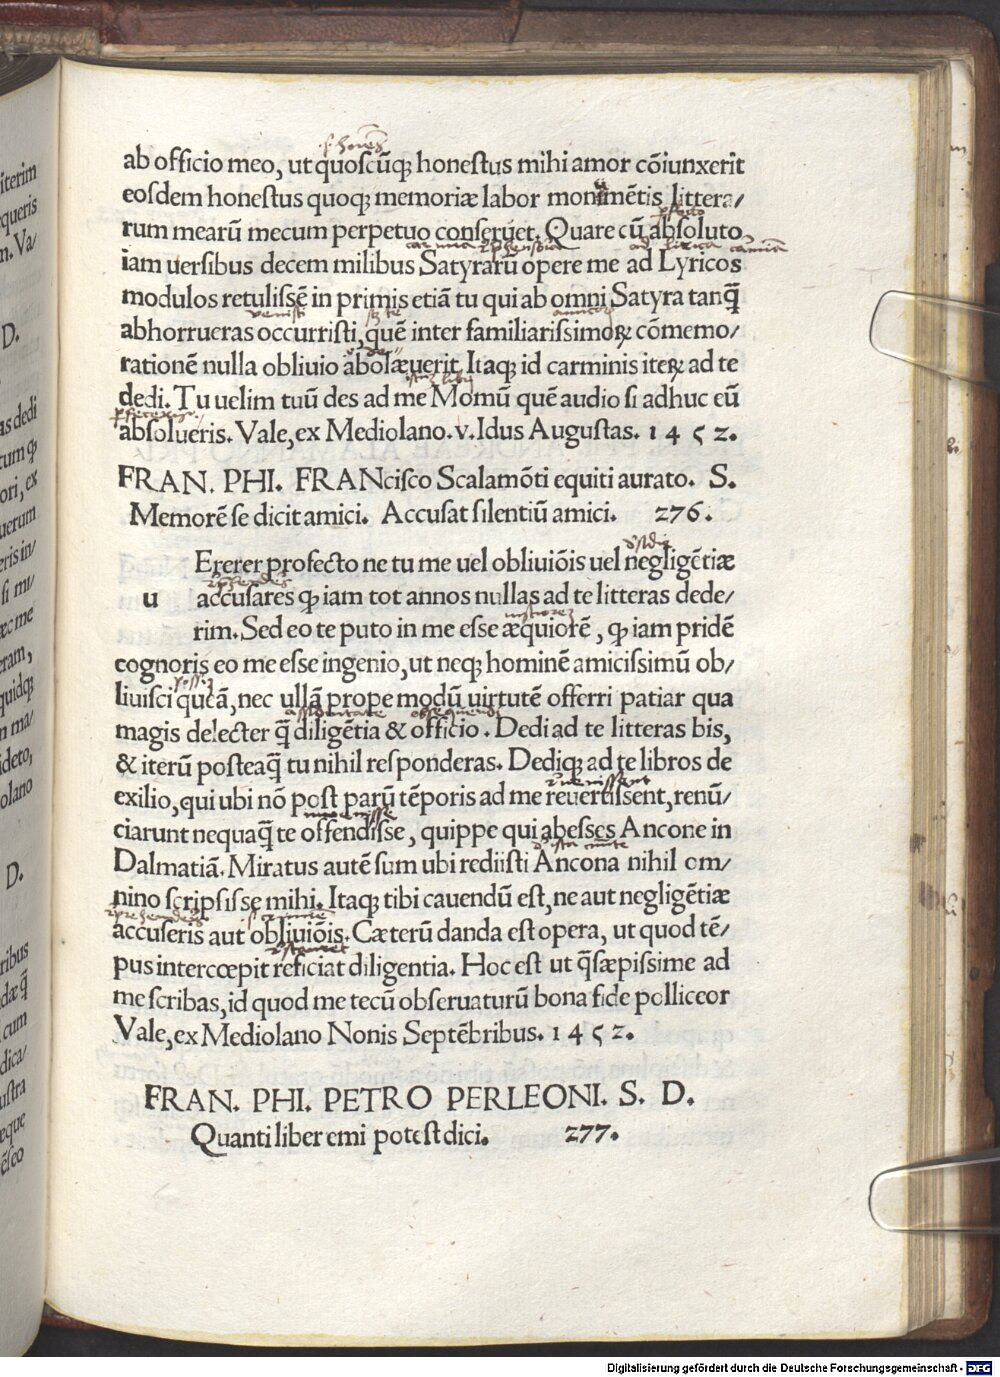 ab officio meo, ut quoscūqꝫ honestus mihi amor cōiunxerit
eosdem honestus quoqꝫ memoriæ labor monumētis littera/
rum mearū mecum perpetuo conseruet. Quare cū absoluto
iam uersibus decem milibus Satyrarū opere me ad Lyricos
modulos retulissē in primis etiā tu qui ab omni Satyra tanq̄
abhorrueras occurristi, quē inter familiarissimoꝝ cōmemo/
rationē nulla obliuio abolæuerit. Itaqꝫ id carminis iteꝝ ad te
dedi. Tu uelim tuū des ad me Momū quē audio si adhuc eū
absolueris. Vale, ex Mediolano. v. Idus Augustas. 1452.
FRAN. PHI. FRANcisco Scalamōti equiti aurato. S.
Memorē se dicit amici. Accusat silentiū amici. 276.
Ererer profecto ne tu me uel obliuiōis uel negligētiæ
u accusares ꝙ iam tot annos nullas ad te litteras dede/
rim. Sed eo te puto in me esse æquiorē, ꝙ iam pridē
cognoris eo me esse ingenio, ut neqꝫ hominē amicissimū ob/
liuisci queā, nec ullā prope modū uirtutē offerri patiar qua
magis delecter q̄ diligētia & officio. Dedi ad te litteras bis,
& iterū posteaq̄ tu nihil responderas. Dediqꝫ ad te libros de
exilio, qui ubi nō post parū tēporis ad me reuertissent, renū/
ciarunt nequaq̄ te offendisse, quippe qui abesses Ancone in
Dalmatiā. Miratus autē sum ubi rediisti Ancona nihil om/
nino scripsisse mihi. Itaqꝫ tibi cauendū est, ne aut negligētiæ
accuseris aut obliuiōis. Cæterū danda est opera, ut quod tē/
pus intercœpit reficiat diligentia. Hoc est ut q̄sæpissime ad
me scribas, id quod me tecū obseruaturū bona fide polliceor
Vale, ex Mediolano Nonis Septēbribus. 1452.
FRAN. PHI. PETRO PERLEONI. S. D.
Quanti liber emi potest dici. 277.
Digitalisierung gefördert durch die Deutsche Forschungsgemeinschaft - DFG